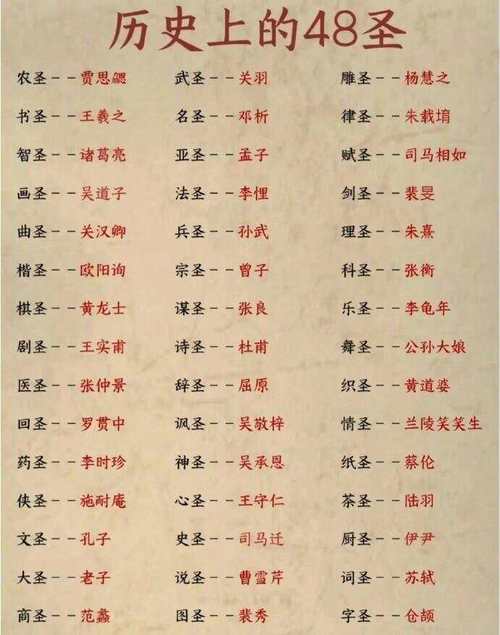 历史上的48圣
农圣--贾思勰 武圣--关羽 雕圣--杨慧之
书圣--王羲之 名圣--邓析 律圣--朱载堉
智圣--诸葛亮 亚圣--孟子 赋圣--司马相如
画圣--吴道子 法圣--李悝 剑圣--裴旻
曲圣--关汉卿 兵圣--孙武 理圣--朱熹
楷圣--欧阳询 宗圣--曾子 科圣--张衡
棋圣--黄龙士 谋圣--张良 乐圣--李龟年
剧圣--王实甫 诗圣--杜甫 舞圣--公孙大娘
医圣--张仲景 辞圣--屈原 织圣--黄道婆
回圣--罗贯中 讽圣--吴敬梓 情圣--兰陵笑笑生
药圣--李时珍 神圣--吴承恩 纸圣--蔡伦
侠圣--施耐庵 心圣--王守仁 茶圣--陆羽
文圣--孔子 史圣--司马迁 厨圣--伊尹
大圣--老子 说圣--曹雪芹 词圣--苏轼
商圣--范蠡 图圣--裴秀 字圣--仓颉